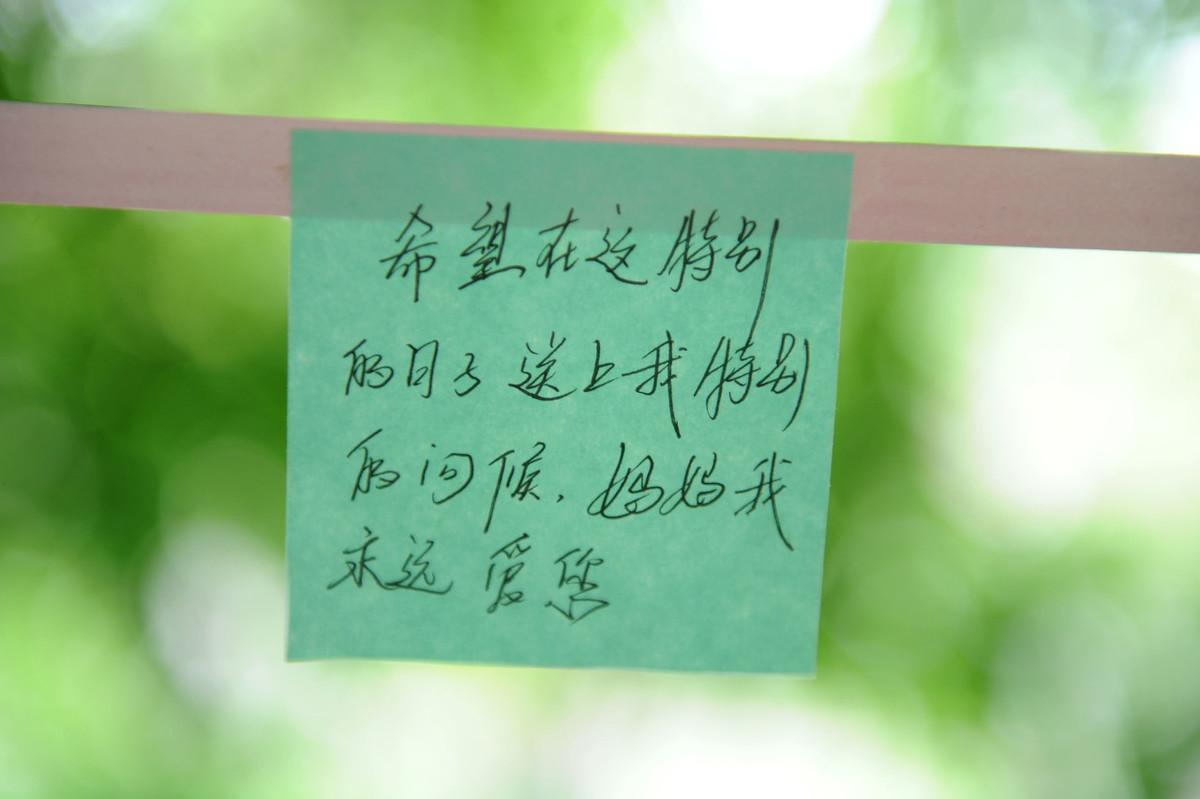 希望在这特别
的日子送上我特别
的问候,妈妈我
永远爱您